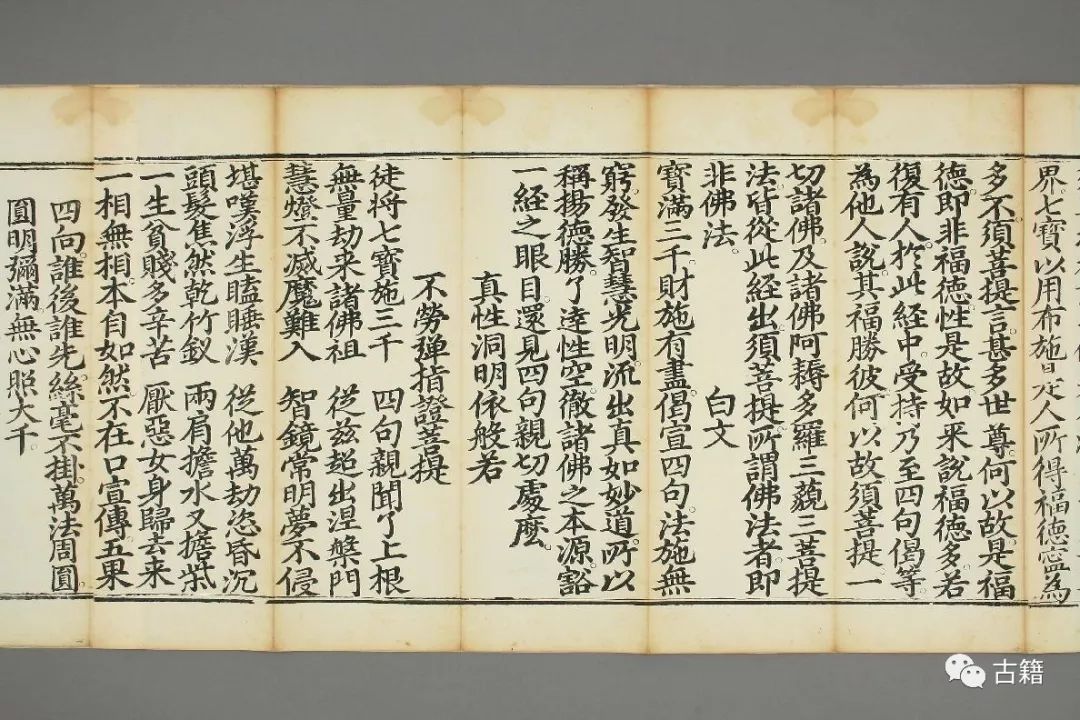 界七寶以用布施是人所得福德寧為
多不須菩提言甚多世尊何以故是福
德即非福德性是故如来說福德多若
復有人於此經中受持乃至四句偈等
為他人說其福勝彼何以故須菩提一
切諸佛及諸佛阿耨多羅三藐三菩提
法皆從此經出須菩提所謂佛法者即
非佛法
白文
寶滿三千財施有盡偈宣四句法施無
窮發生智慧光明流出真如妙道所以
稱揚德勝了達性空徹諸佛之本源豁
一經之眼目還見四句親切處麽
真性洞明依般若
不勞弹指證菩提
徒将七寶施三千　四句親聞了上根
無量劫来諸佛祖　從兹超出涅槃門
慧燈不滅魔難入　智鏡常明夢不侵
堪嘆浮生瞌睡漢　從他萬劫恣昏沉
頭髮焦然乾竹釵　兩肩擔水又擔柴
一生貧賤多辛苦　厭惡女身歸去来
一相無相本自如然不在口宣傳五果
四向誰後誰先絲毫不掛萬法周圓
圓明彌滿無心照大千
古籍